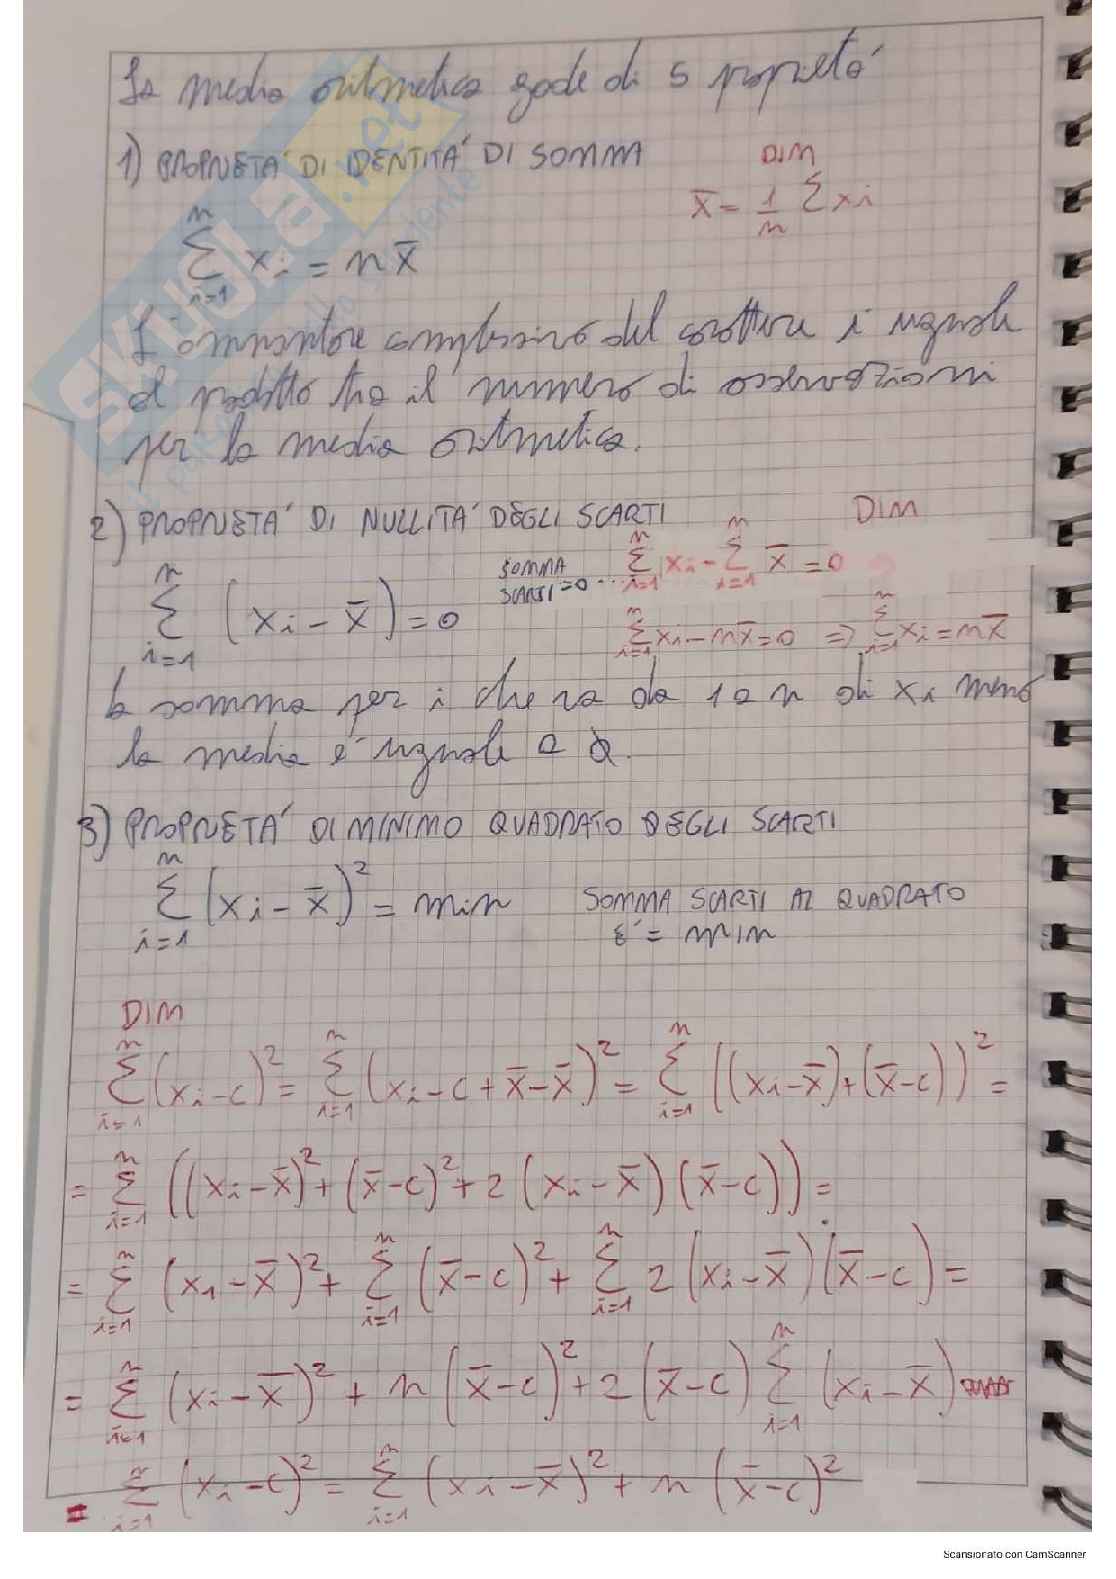 La media aritmetica gode di 5 proprietá
1) PROPRIETÁ DI IDENTITÁ DI SOMMA
DIM
x̄ = 1/n Σ xi
Σ_{i=1}^{n} xi = n x̄
L'ammontare complessivo del carattere è uguale
al prodotto tra il numero di osservazioni
per la media aritmetica.
2) PROPRIETÁ DI NULLITÁ DEGLI SCARTI
DIM
Σ_{i=1}^{n} (xi - x̄) = 0
SOMMA SCARTI = 0 ... Σ_{i=1}^{n} xi - Σ_{i=1}^{n} x̄ = 0
Σ_{i=1}^{n} xi - n x̄ = 0 => Σ_{i=1}^{n} xi = n x̄
la somma per i che va da 1 a n di xi meno
la media é uguale a 0.
3) PROPRIETÁ DI MINIMO QUADRATO DEGLI SCARTI
Σ_{i=1}^{n} (xi - x̄)² = min SOMMA SCARTI AL QUADRATO
É = MIN
DIM
Σ_{i=1}^{n} (xi - c)² = Σ_{i=1}^{n} (xi - c + x̄ - x̄)² = Σ_{i=1}^{n} ((xi - x̄) + (x̄ - c))² =
= Σ_{i=1}^{n} ((xi - x̄)² + (x̄ - c)² + 2 (xi - x̄) (x̄ - c)) =
= Σ_{i=1}^{n} (x1 - x̄)² + Σ_{i=1}^{n} (x̄ - c)² + Σ_{i=1}^{n} 2 (xi - x̄) (x̄ - c) =
= Σ_{i=1}^{n} (xi - x̄)² + n (x̄ - c)² + 2 (x̄ - c) Σ_{i=1}^{n} (xi - x̄)
= Σ_{i=1}^{n} (xi - c)² = Σ_{i=1}^{n} (xi - x̄)² + n (x̄ - c)²
SKUOLA.net
Scansionato con CamScanner